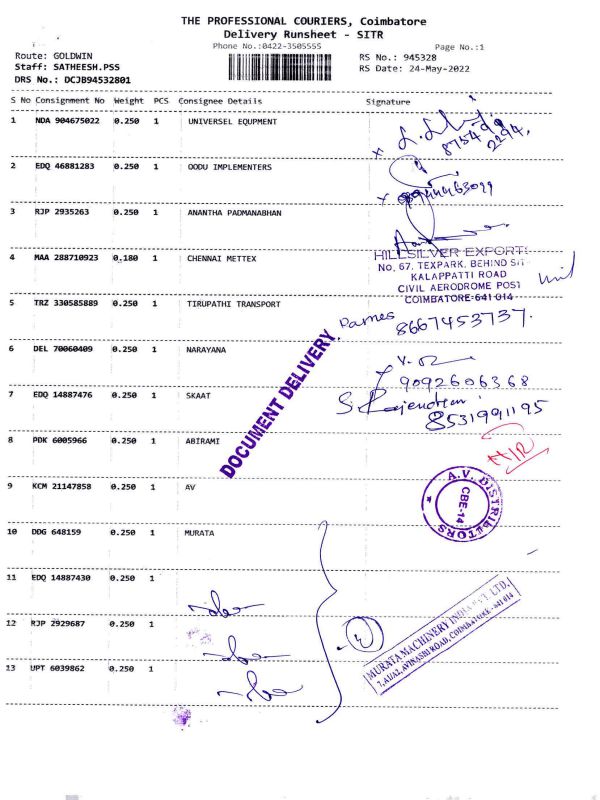 THE PROFESSIONAL COURIERS, Coimbatore
Delivery Runsheet - SITR
Phone No.:0422-3505555
Page No.:1
Route: GOLDWIN
RS No.: 945328
Staff: SATHEESH.PSS
RS Date: 24-May-2022
DRS No.: DCJB94532801
S No Consignment No Weight PCS Consignee Details Signature
1 NDA 904675022 0.250 1 UNIVERSEL EQUPMENT
2 EDQ 46881283 0.250 1 OODU IMPLEMENTERS
3 RJP 2935263 0.250 1 ANANTHA PADMANABHAN
4 MAA 288710923 0.180 1 CHENNAI METTEX
HILLSILVER EXPORT
No. 67, TEXPARK, BEHIND
KALAPPATTI ROAD
CIVIL AERODROME POST
COIMBATORE-641 014
5 TRZ 330585889 0.250 1 TIRUPATHI TRANSPORT
8667453737.
DOCUMENT DELIVERY
6 DEL 70060409 0.250 1 NARAYANA
9092606368
7 EDQ 14887476 0.250 1 SKAAT
S. Rajendran
8531991195
8 PDK 6005966 0.250 1 ABIRAMI
9 KCM 21147858 0.250 1 AV
A.V. DISTRIBUTORS
CBE-14
10 DDG 648159 0.250 1 MURATA
11 EDQ 14887430 0.250 1
12 RJP 2929687 0.250 1
MURATA MACHINERY INDIA PVT. LTD.
13 UPT 6039862 0.250 1